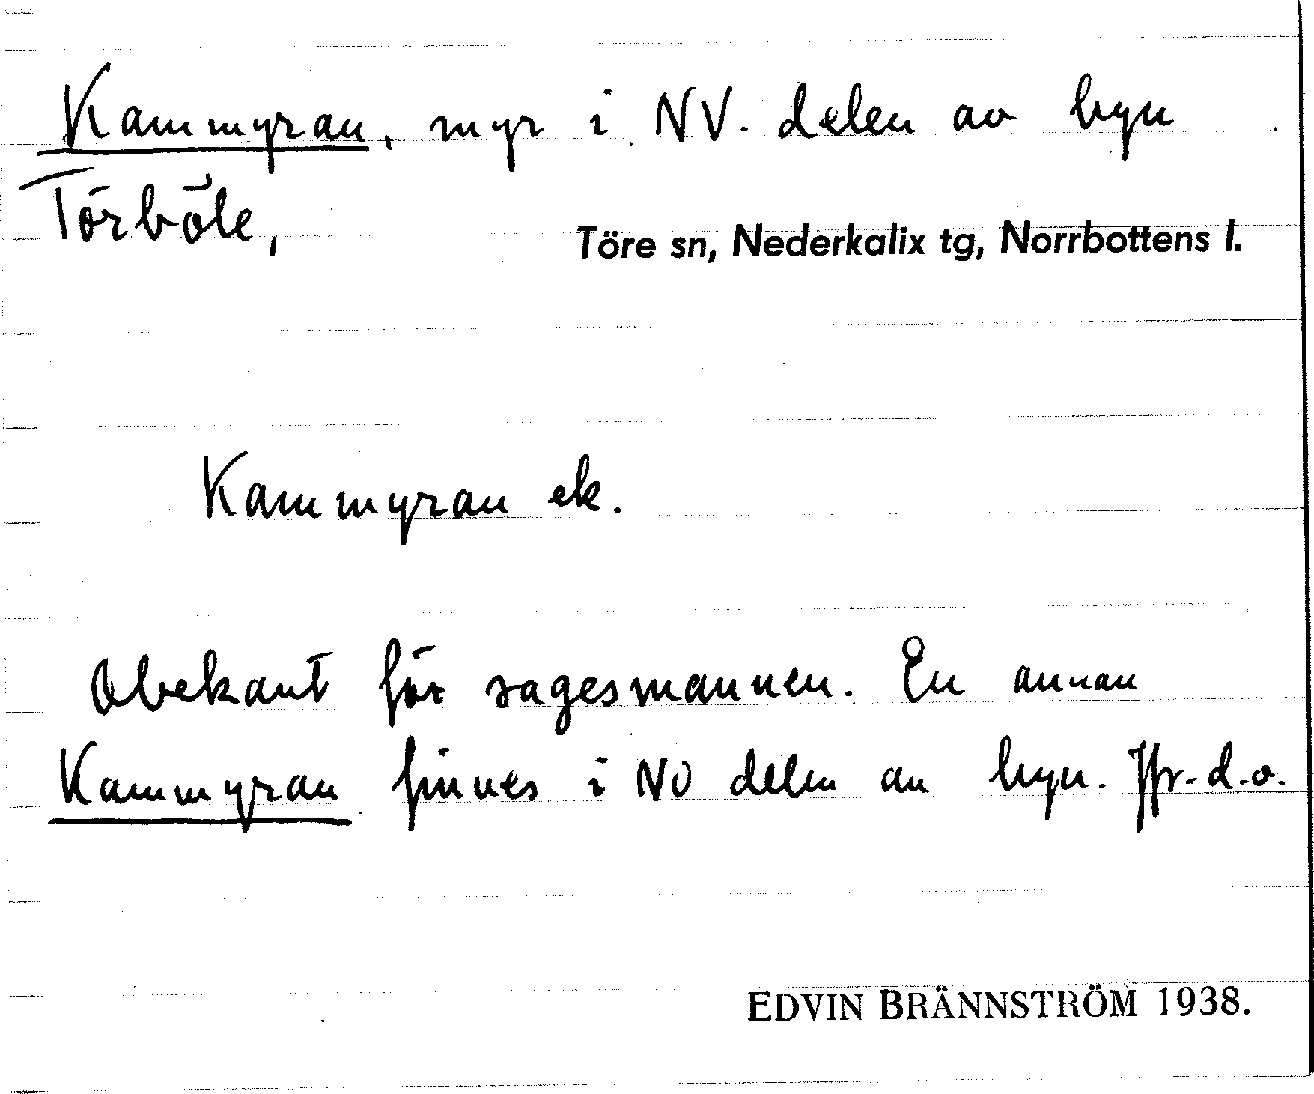 Kammyran, myr i NV. delen av byn
Törböle,
Töre sn, Nederkalix tg, Norrbottens l.
Kammyran ek.
Obekant för sagesmannen. En annan
Kammyran finnes i NO delen av byn. Jfr. d.o.
EDVIN BRÄNNSTRÖM 1938.